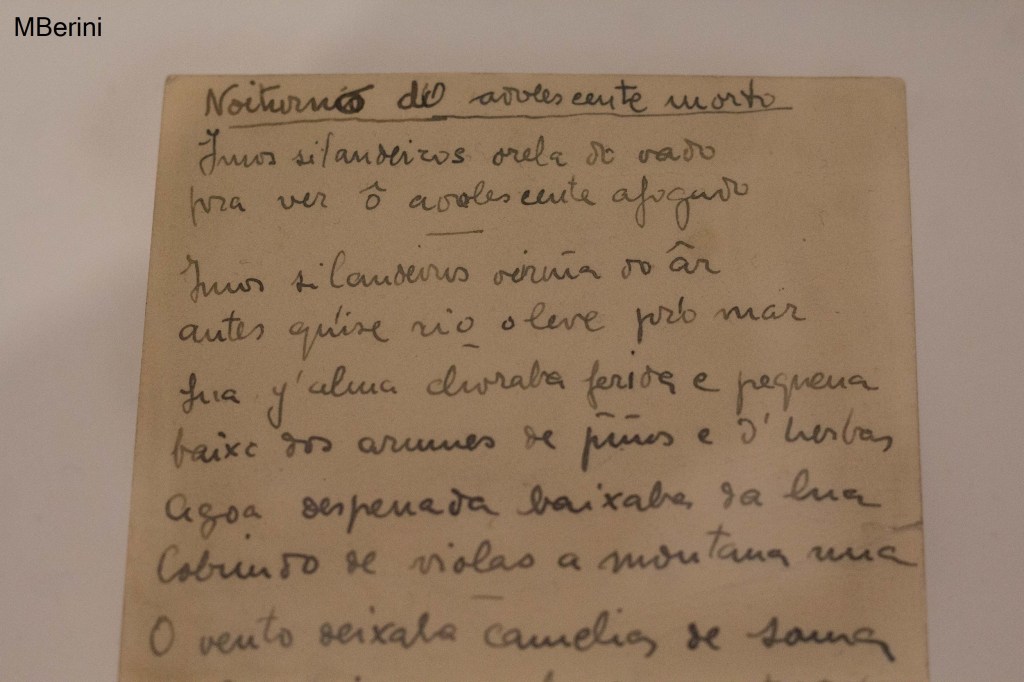 MBerini
Noiturnó do adolescente morto
Imos silandeiros orela do vado
pra ver ô adolescente afogado
Imos silandeiros veiriña do âr
antes qu'ise rio o leve pr'o mar
Sua y'alma choraba ferida e pequena
baixo dos arumes de piños e d'herbas
Agoa despenada baixaba da lua
Cobrindo de violas a montana nua
O vento deixaba camelias de soma